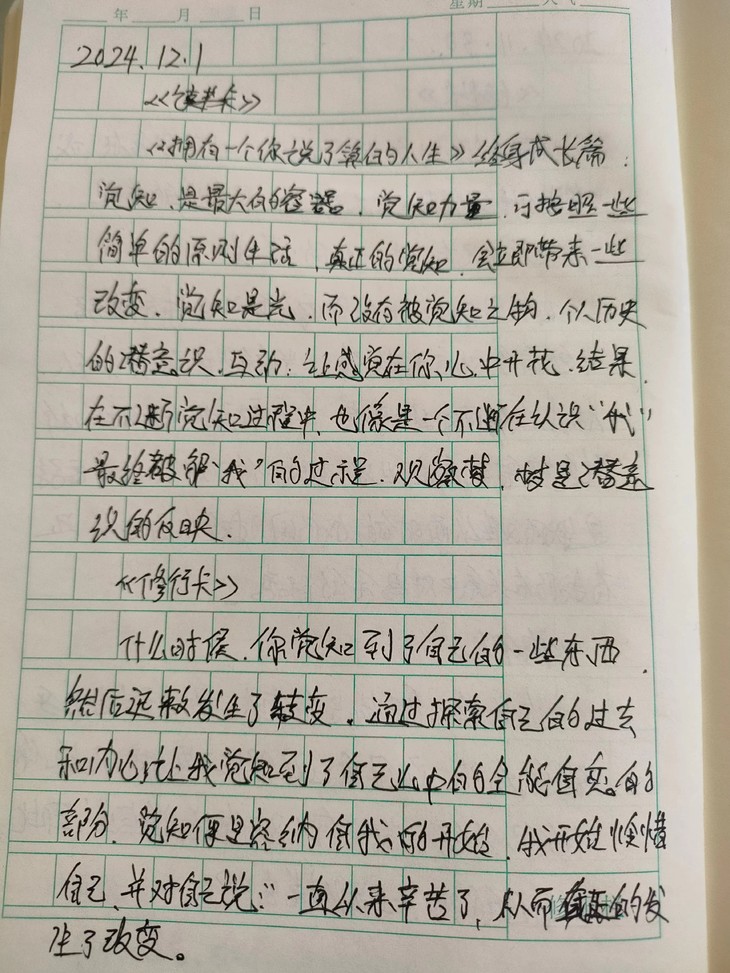 年 月 日 星期 天气
2024.12.1
《读书卡》
《拥有一个你说了算的人生》终身成长篇：
觉知，是最大的容器，觉知力量，可按照一些
简单的原则生活，真正的觉知，会立即带来一些
改变，觉知是光，而没有被觉知之物，个人历史
的潜意识，互动，让感觉在你心中开花，结果，
在不断觉知过程中，也像是一个不断在认识“我”
最终破解“我”的过程，观察梦，梦是潜意
识的反映.
《修行卡》
什么时候，你觉知到了自己的一些东西，
然后迅来发生了转变，通过探索自己的过去
和内心让我觉知到了自己心中的全能自恋的
部分，觉知便是容纳自我的开始，我开始怜惜
自己，并对自己说：“一直以来辛苦了，从而 的发
生了改变。